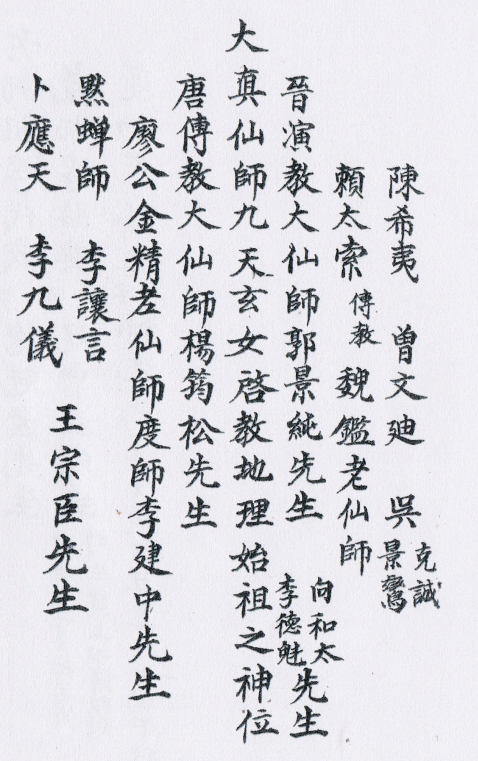 陳希夷 曾文迪 吳克誠景鸞
賴太索傳教 魏鑑老仙師
晉演教大仙師郭景純先生 向和太李德魁先生
大真仙師九天玄女啓教地理始祖之神位
唐傳教大仙師楊筠松先生
廖公金精老仙師度師李建中先生
黙蝉師 李讓言
卜應天 李九儀 王宗臣先生